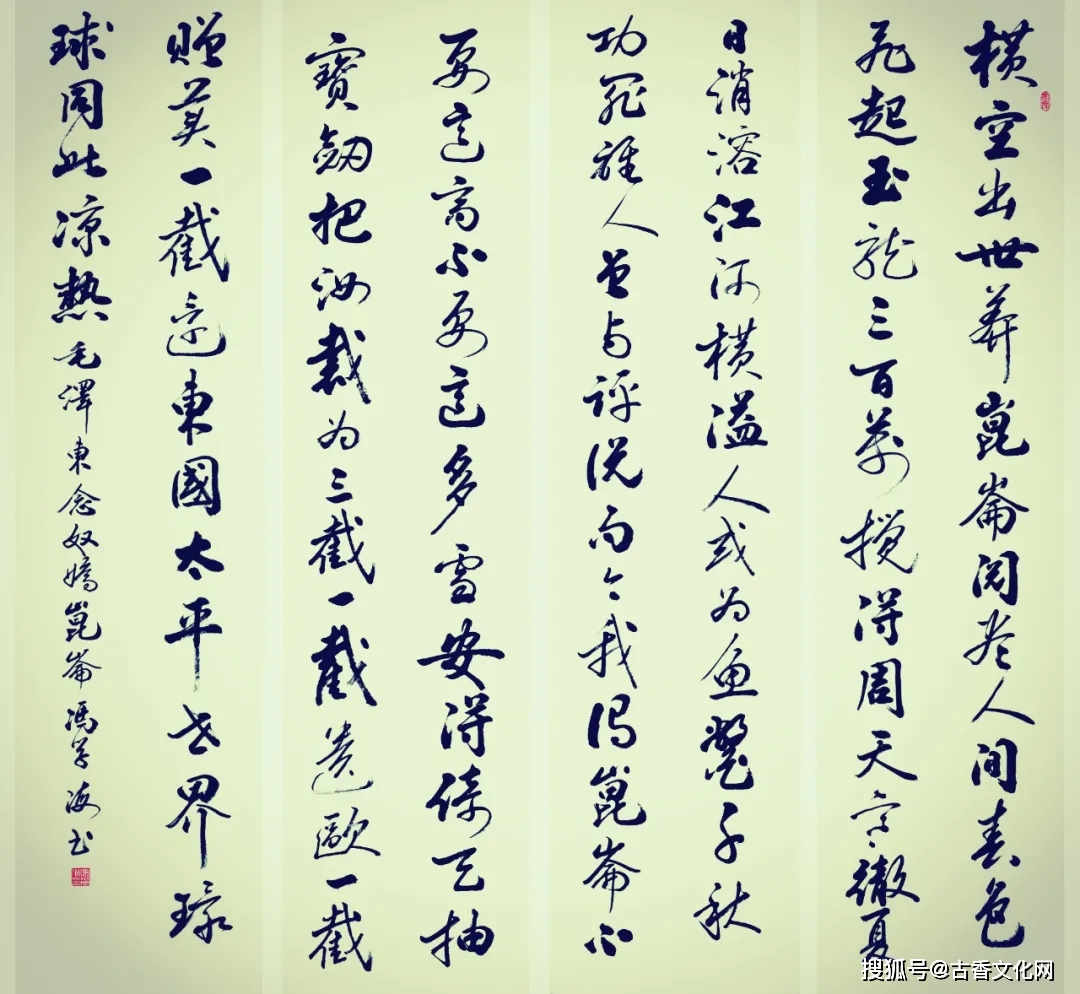 横空出世莽崑崙阅尽人间春色
飛起玉龍三百萬攪得周天寒徹夏
日消溶江河横溢人或为魚鱉千秋
功罪誰人曾与評说而今我谓崑崙不
要這高不要這多雪安得倚天抽
寶劒把汝裁为三截一截遺歐一截
贈美一截還東國太平世界環
球同此凉熱毛澤東念奴嬌崑崙馮学海书
搜狐号@古香文化网